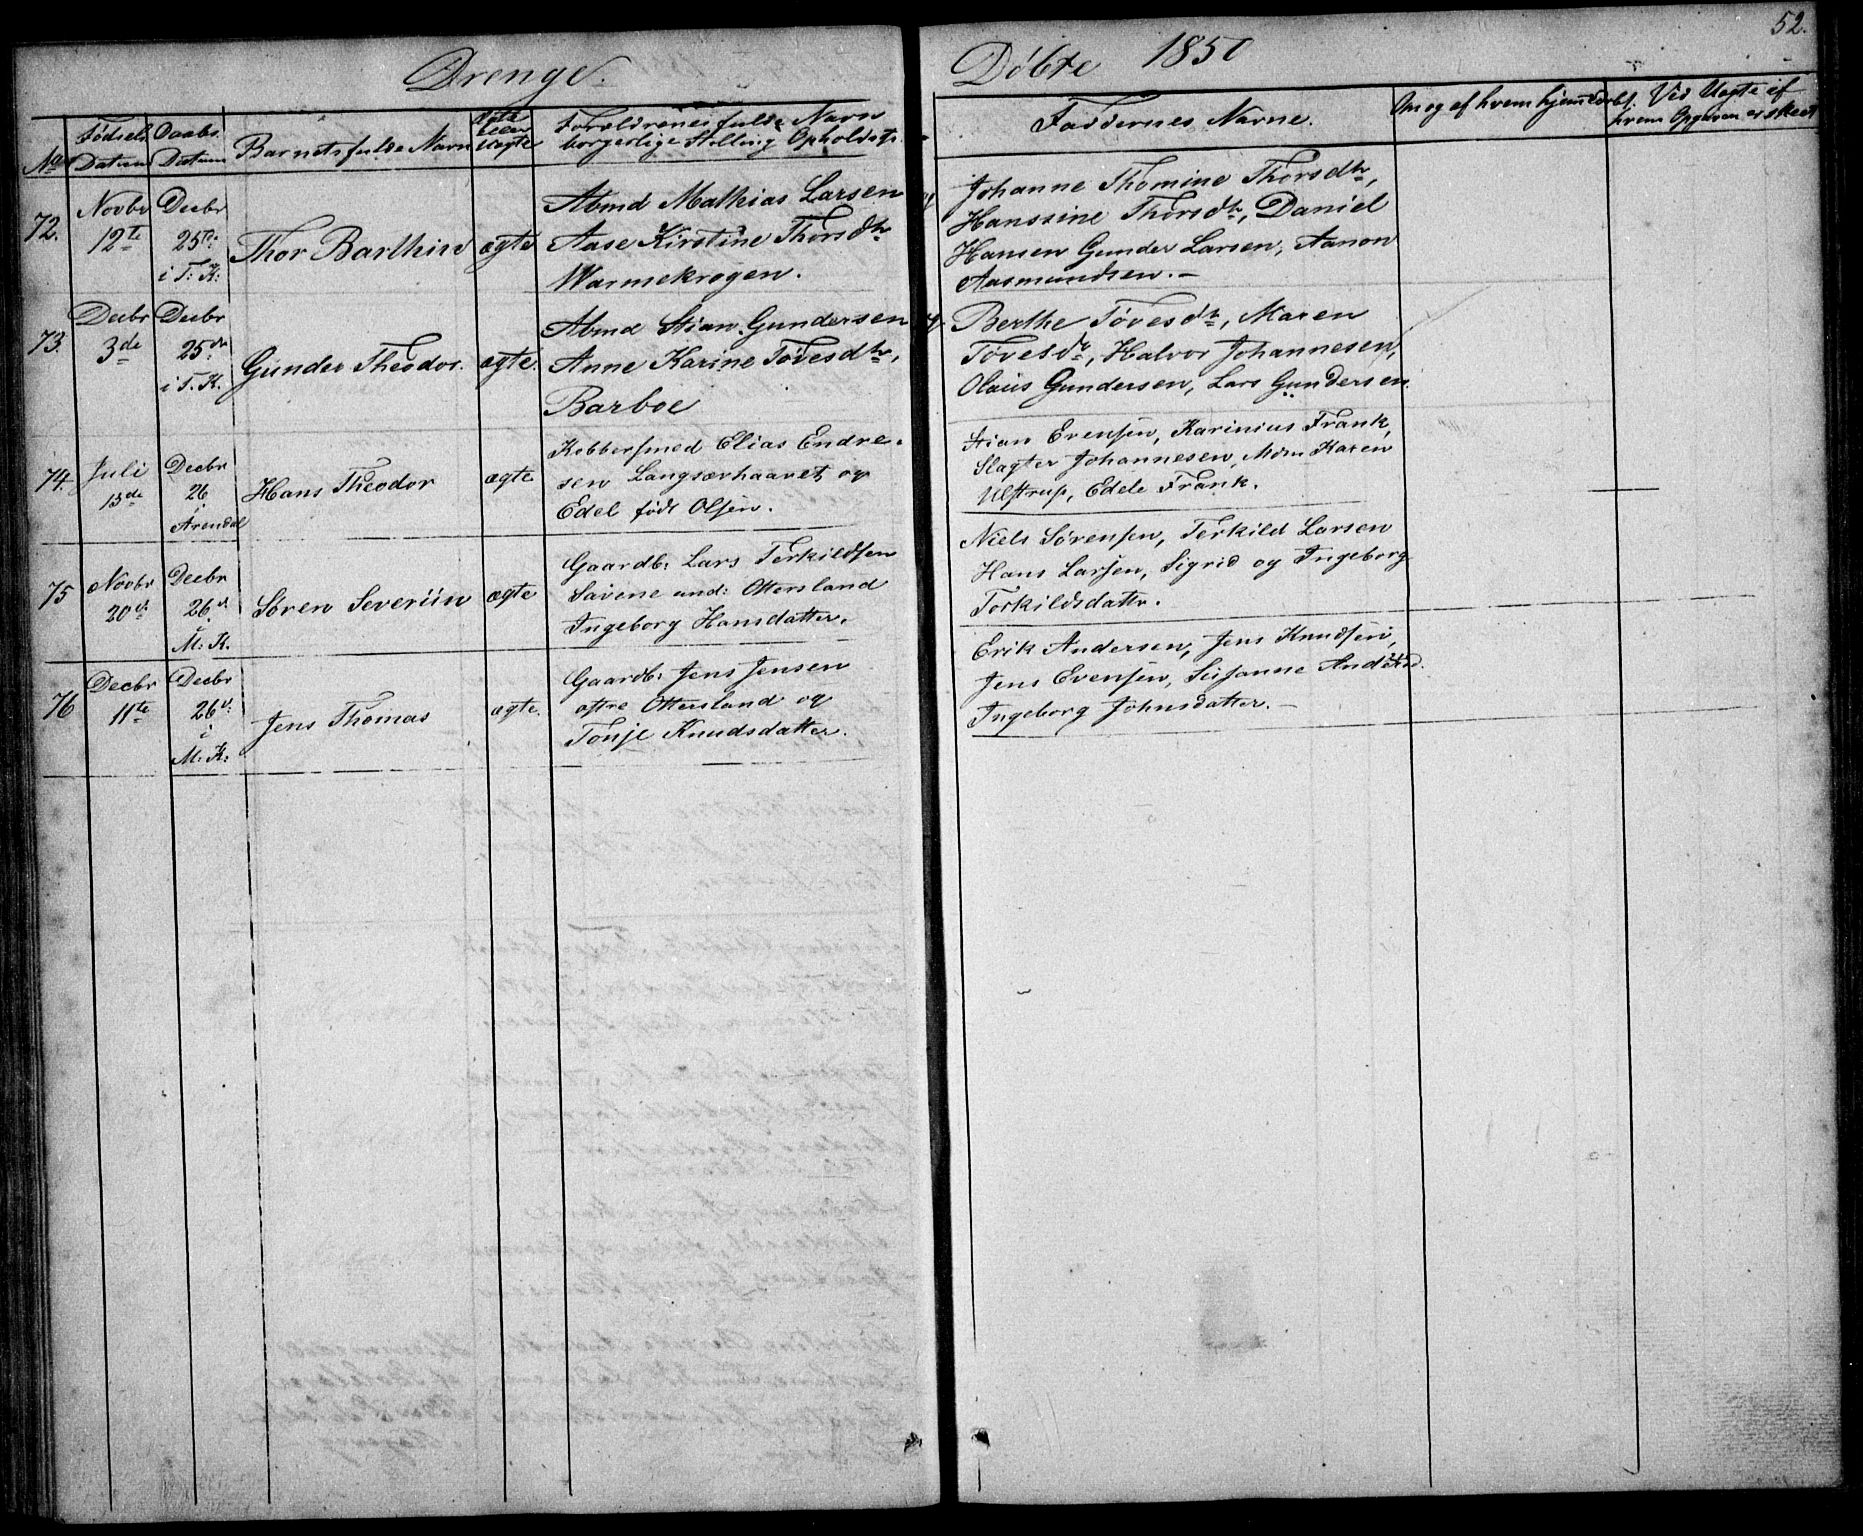 52.
Drenge.
Døbte 1850
No
Fødsels Datum
Daabs Datum
Barnets fulde Navn
Ægte eller Uægte
Forældrenes fulde Navn
borgerlige Stilling Opholdst:
Faddernes Navne.
Om og af hvem hjemdøbt.
Ved Uægte af
hvem Opgaven er skeet
72.
Novbr
12te
Decbr
25de
i T: K:
Thor Barthin
ægte
Abmd Mathias Larsen og
Aase Kirstine Thorsdtr
Warmekrogen.
Johanne Thomine Thorsdtr,
Hanssine Thorsdtr, Daniel
Hansen Gunder Larsen, Aanon
Aasmundsen.-
73.
Decbr
3de
Decbr
25de
i T. K.
Gunder Theodor.
ægte.
Abmd Stian Gundersen og
Anne Karine Tøvesdtr,
Barboe
Berthe Tøvesdtr, Maren
Tøvesdtr, Halvor Johannesen,
Olaus Gundersen, Lars Gundersen
74.
Juli
13de
Decbr
26
i
Arendal
Hans Theodor
ægte
Kobbersmed Elias Endre-
sen Langsævhaaret og
Edel født Olsen.
Stian Evensen, Karinius Frank,
Slagter Johannesen, Mdm Karen
Ulstrup, Edele Frank.
75
Novbr
20de
Decbr
26d
i
M: K.
Søren Severiin
ægte
Gaardb: Lars Terkildsen
Savene und: Ottersland
Ingeborg Hansdatter.
Niels Sørensen, Terkild Larsen
Hans Larsen, Sigrid og Ingeborg
Torkildsdattr.
76
Decbr
11te
Decbr
26d:
i
M: K:
Jens Thomas
ægte.
Gaardb: Jens Jensen
øftre Ottersland og
Tonje Knudsdatter.
Erik Andersen, Jens Knudsen,
Jens Evensen, Susanne
Ingeborg Johnsdatter.-